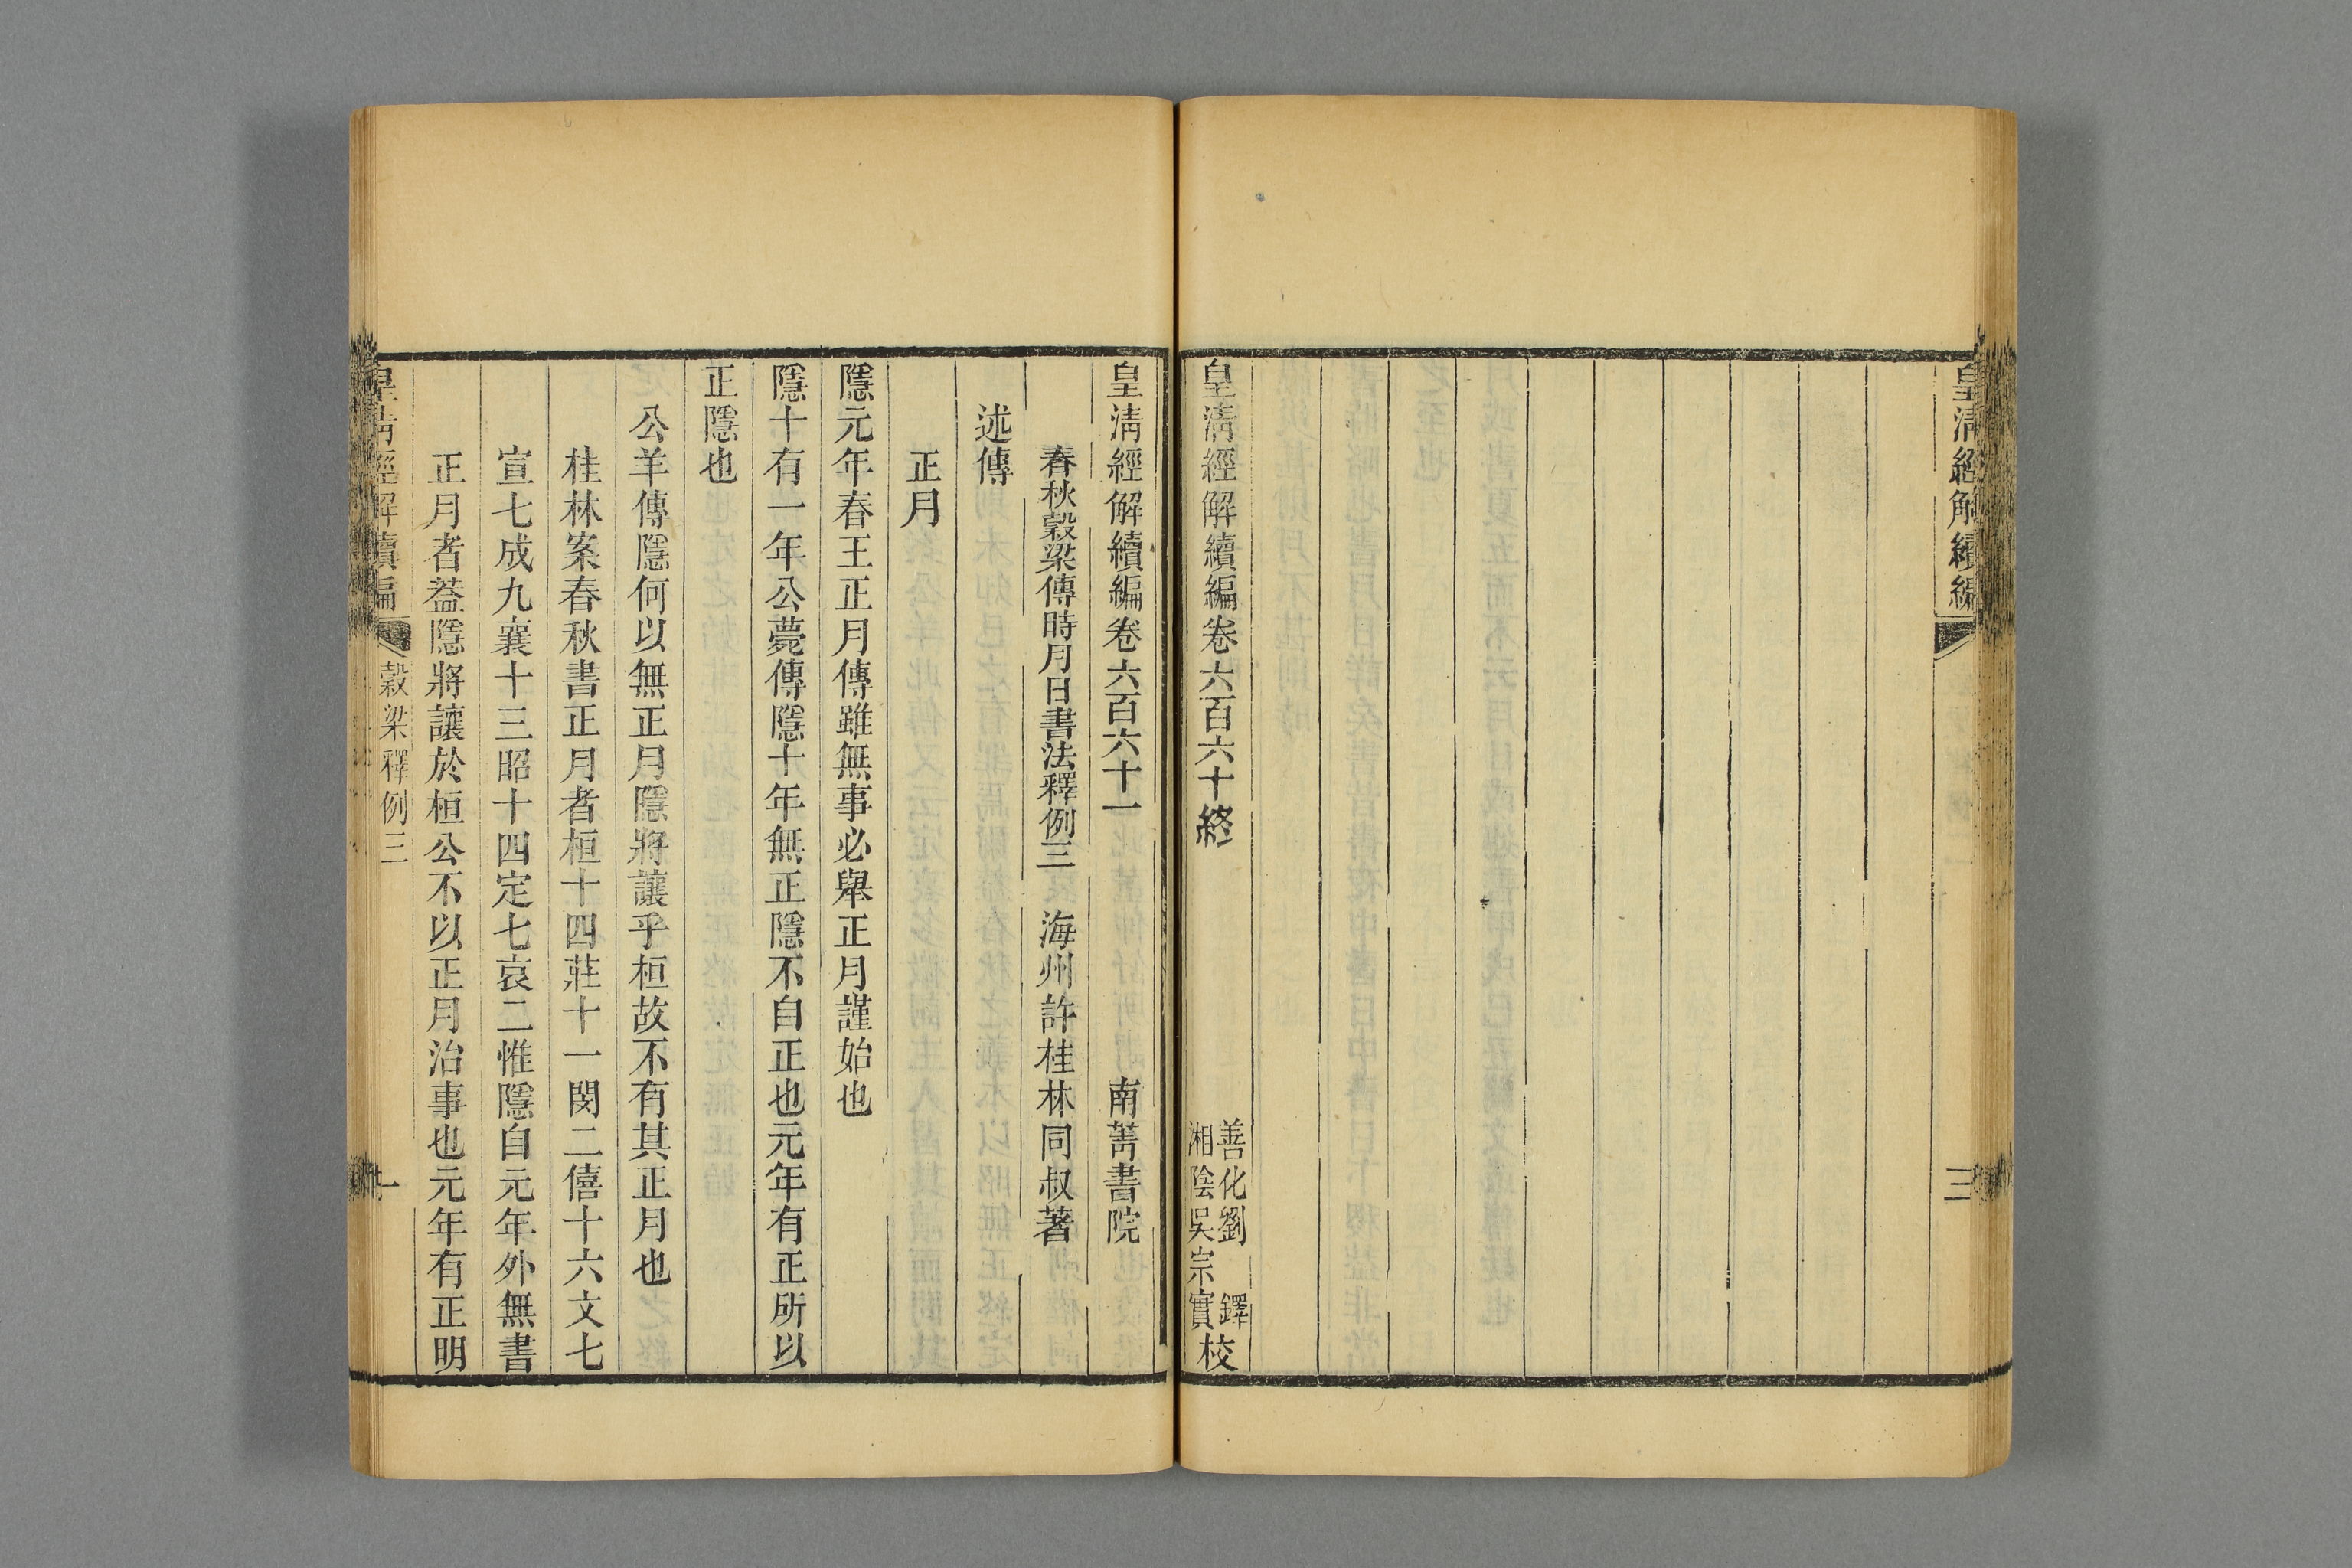 皇淸經解續編
三
皇淸經解續編卷六百六十終
善化劉鐸
湘陰吳宗實校
皇淸經解續編卷六百六十一
南菁書院
春秋穀梁傳時月日書法釋例三
海州許桂林同叔著
述傳
正月
隱元年春王正月傳雖無事必舉正月謹始也
隱十有一年公薨傳隱十年無正隱不自正也元年有正所以
正隱也
公羊傳隱何以無正月隱將讓乎桓故不有其正月也
桂林案春秋書正月者桓十四莊十一閔二僖十六文七
宣七成九襄十三昭十四定七哀二惟隱自元年外無書
正月者葢隱將讓於桓公不以正月治事也元年有正明
皇淸經解續編
穀梁釋例三
一